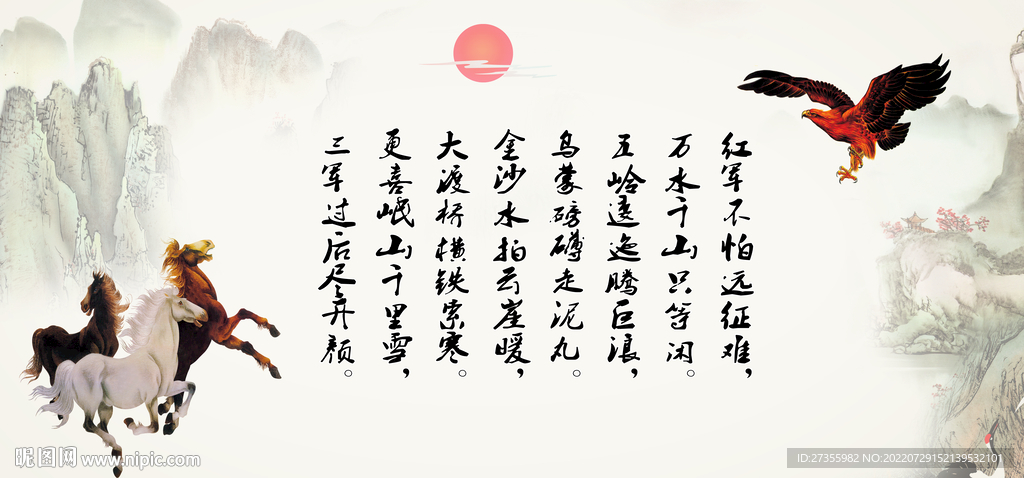 红军不怕远征难，
万水千山只等闲。
五岭逶迤腾巨浪，
乌蒙磅礴走泥丸。
金沙水拍云崖暖，
大渡桥横铁索寒。
更喜岷山千里雪，
三军过后尽开颜。
昵图网 www.nipic.com
ID:27355982 NO:20220729152139532101